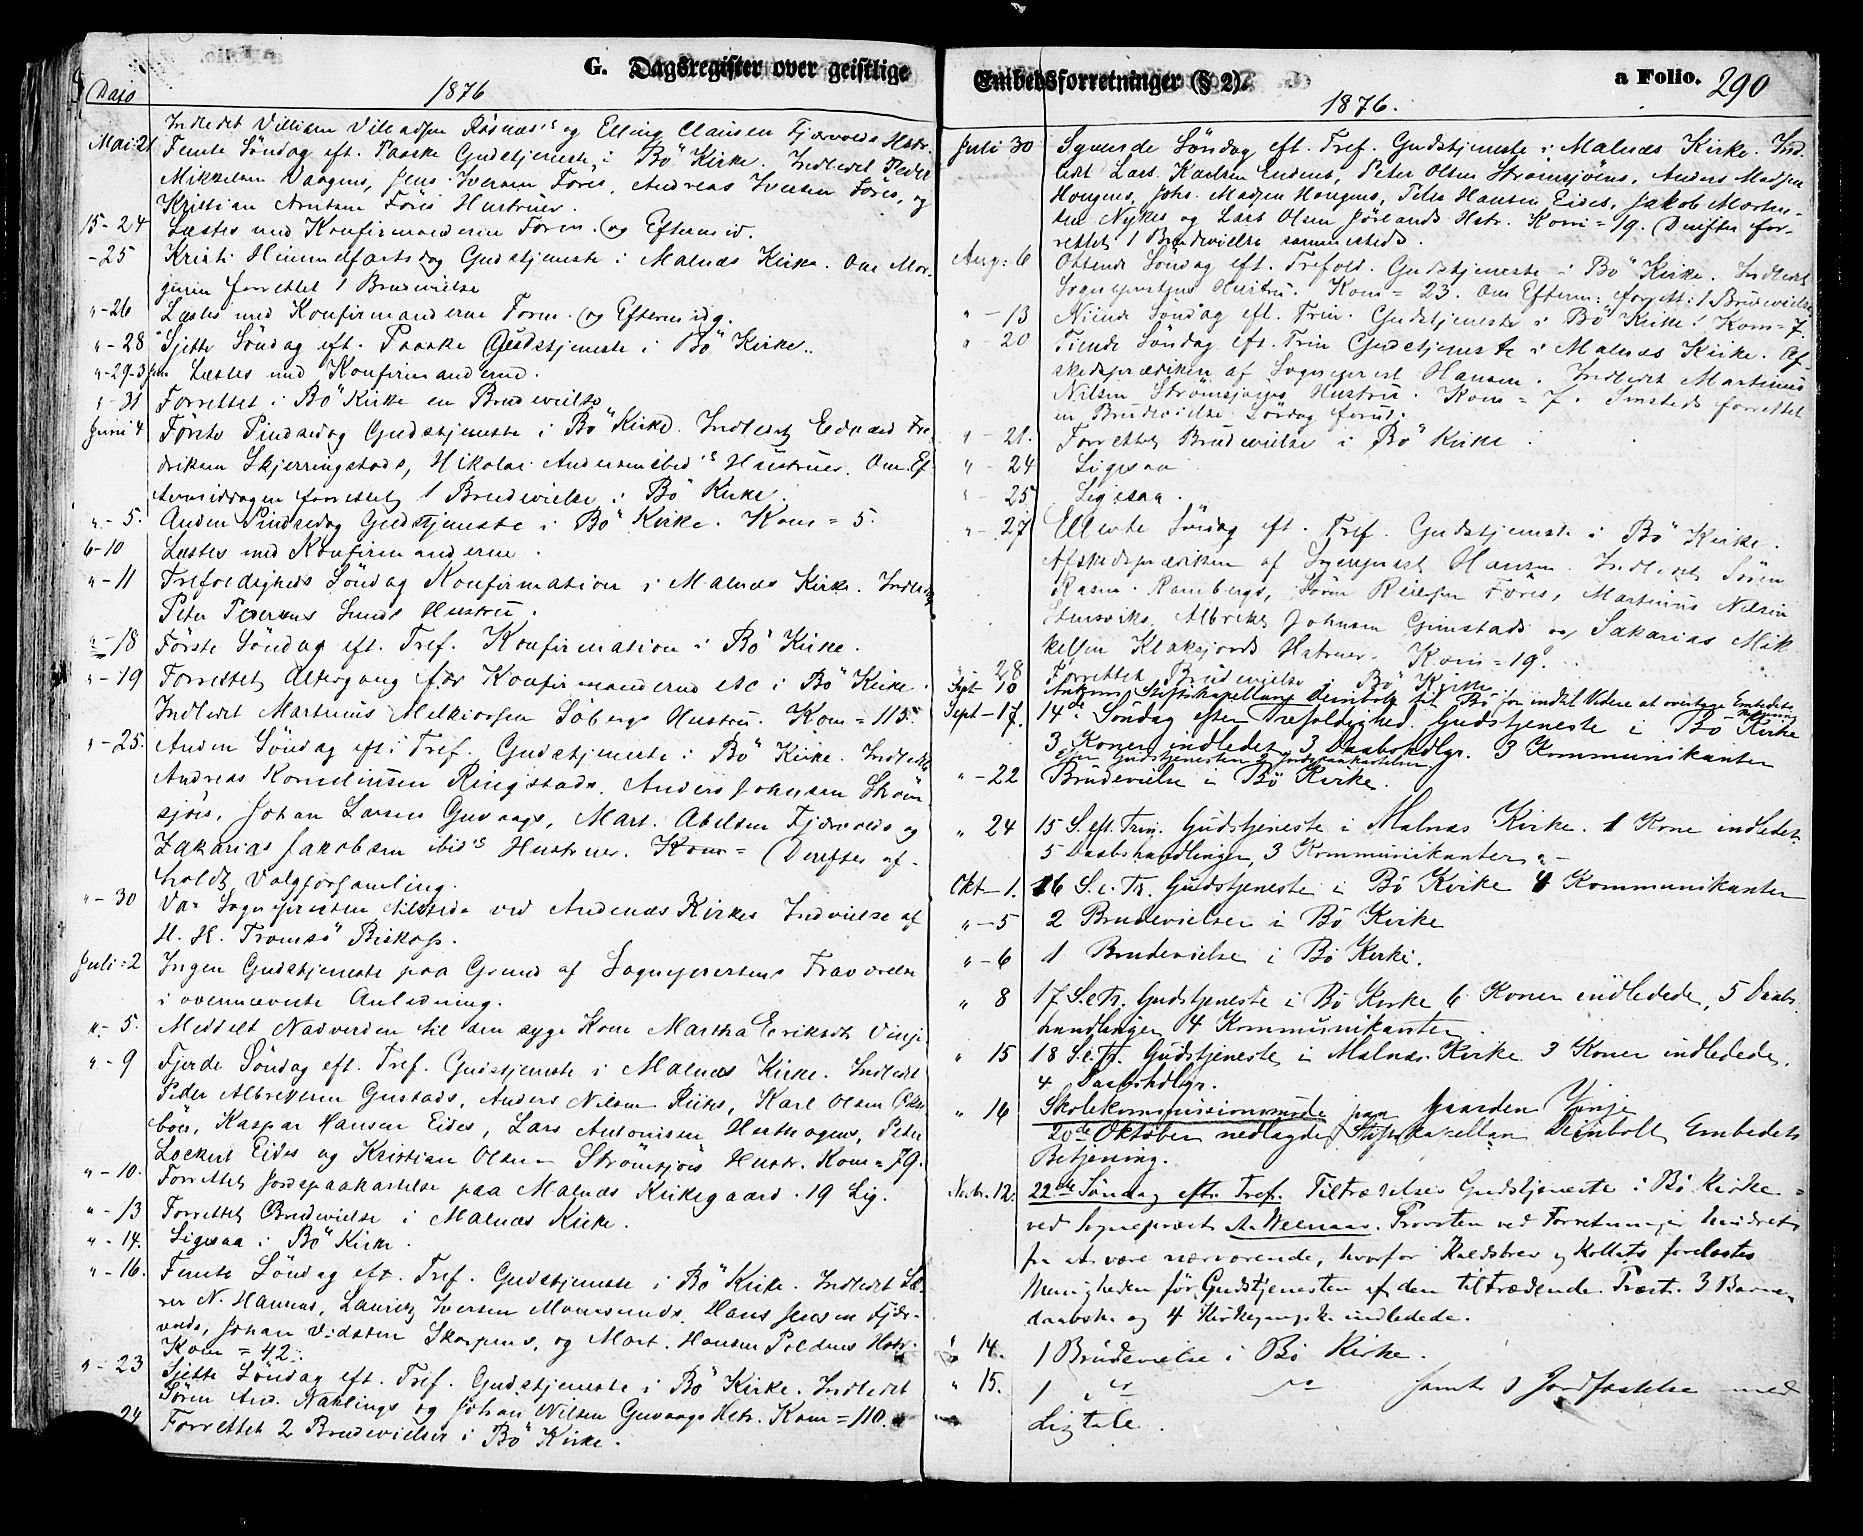 G. Dagsregister over geistlige
Dato
1876
Indledet Villiam Villadsen Røsnæs's og Elling Clausen Fjærvolds Hstr.
Mai 21 Femte Söndag eft. Paaske Gudstjeneste i Bö Kirke. Indledet Peder
Mikkelsen Vaagens, Jens Iversen Föres, Andreas Iversen Föres, og
Kristian Arntsen Föres Hustruer.
15-24 Læstes med Konfirmanderne Form. og Eftermid.
-25 Kristi Himmelfartsdag Gudstjeneste i Malnæs Kirke. Om Mor-
genen forrettet 1 Brudevielse
" -26 Læstes med Konfirmanderne Form. og Eftermidg.
" -28 Sjette Söndag eft. Paaske Gudstjeneste i Bö Kirke.
" -29-3 Læstes med Konfirmanderne.
" -31 Forrettet i Bö Kirke en Brudevielse
Juni 4 Förste Pindsedag Gudstjeneste i Bö Kirke. Indledet Edvard Fre-
driksen Skjerringstads, Nikolai Andersen ibid's Hustruer. Om Ef-
termiddagen forrettet 1 Brudevielse i Bö Kirke.
" -5. Anden Pindsedag Gudstjeneste i Bö Kirke. Kom = 5.
6-10 Læstes med Konfirmanderne.
" -11 Trefoldigheds Söndag Konfirmation i Malnæs Kirke. Indledet
Peter Petersens Hustru.
" -18 Förste Söndag eft. Tref. Konfirmation i Bö Kirke.
" -19 Forrettet Altergang for Konfirmanderne etc i Bö Kirke.
Indledet Martinus Melkiorsen Söbergs Hustru. Kom = 115.
" -25. Anden Söndag eft. Tref. Gudstjeneste i Bö Kirke. Indledet
Andreas Korneliussen Ringstads, Anders Johnsen Ström-
sjöes, Johan Larsen Guvaags, Mart. Abelsen Fjærvolds og
Zakarias Jakobsen ibid's Hustruer. Kom = (Derefter af-
holdt Valgforsamling.
" -30 Var Sognepresten tilstede ved Andenæs Kirkes Indvielse af
H. H. Tromsö Biskop.
Juli: 2 Ingen Gudstjeneste paa Grund af Sogneprestens Fraværelse
i ovennævnte Anledning.
" -5. Meddelt Nadverden til den syge Kone Martha Eriksdt. Vinje
" -9 Fjerde Söndag eft. Tref. Gudstjeneste i Malnæs Kirke. Indledet
Peder Albrektsen Gustads, Anders Nilsen Rises, Karl Olsen
böes, Kaspar Hansen Eides, Lars Antonisen Husthagens, Peter
Lockert Eides og Kristian Olsen Strömsjöes Hustr. Kom = 79.
" -10. Forrettet Jordspaakastelse paa Malnæs Kirkegaard. 19 Lig.
" -13 Forrettet Brudevielse i Malnæs Kirke.
" -14. Ligesaa i Bö Kirke.
" -16. Femte Söndag eft. Tref. Gudstjeneste i Bö Kirke. Indledet Læ-
rer N. Hansens, Lauritz Iversen Hans Jensen Fjær-
volds, Johan Vidsten Skagens, og Mart. Hansen Poldens Hstr.
Kom = 42.
" -23 Sjette Söndag eft. Tref. Gudstjeneste i Bö Kirke. Indledet
Sören And. Nøklings og Johan Nilsen Guvaags Hstr. Kom = 110.
24 Forrettet 2 Brudevielser i Bö Kirke.
Embedsforretninger (§ 2).
a Folio. 290
1876.
Juli 30 Syvende Söndag eft. Tref. Gudstjeneste i Malnæs Kirke. Ind-
ledt Lars Karlsen Endens, Peter Olsen Strömsjöens, Anders Madsen
Hougens, Johs. Madsen Hougens, Peter Hansen Eides, Jakob Morten-
sen Nykes og Lars Olsen Jörlands Hstr. Kom = 19. (Derefter for-
rettet 1 Brudevielse sammesteds.
Aug: 6 Ottende Söndag eft. Trefold. Gudstjeneste i Bö Kirke. Indledet
Sogneprestens Hustru. Kom = 23. Om Efterm: forrett: 1 Brudevielse
" -13 Niende Söndag eft. Trin. Gudstjeneste i Bö Kirke. Kom = 7.
" -20 Tiende Söndag eft. Trin Gudstjeneste i Malnæs Kirke. Af-
skedsprædiken af Sogneprest Hansen. Indledet Martinus
Nilsen Strömsjöens Hustru. Kom = 7. Smsteds forrettet
en Brudevielse Lördag forud.
" -21. Forrettet Brudevielse i Bö Kirke
" -24 Ligesaa
" -25 Ligesaa.
" -27 Ellevte Söndag eft. Tref. Gudstjeneste i Bö Kirke.
Afskedsprædiken af Sogneprest Hansen. Indledet Sören
Rasm. Rambergs, Sören Föres, Martinus Nilsen
Steensviks, Albrikt Johnsen Gimstads og Sakarias Mik-
kelsen Klaksjords Hstruer. Kom = 19.
28 Forrettet Brudevielse i Bö Kirke.
Sept-10 Ankom Stiftskapellan Deinboll til Bö for indtil Videre at overtage Embedets
Betjening
Sept-17. 14de Söndag efter Trefoldighed. Gudstjeneste i Bö Kirke
3 Koner indledet 3 Daabshdlgr. 3 Kommunikanter
Efter Gudstjenesten Jordspaakastelser
" -22 Brudevielse i Bö Kirke.
" 24 15 S. eft. Trin. Gudstjeneste i Malnæs Kirke. 1 Kone indledet.
5 Daabshandlinger, 3 Kommunikanter.
Okt-1. 16 S. e. Tr. Gudstjeneste i Bö Kirke 4 Kommunikanter
" -5 2 Brudevielser i Bö Kirke
" -6 1 Brudevielse i Bö Kirke.
" 8 17 S. e. Tr. Gudstjeneste i Bö Kirke 6 Koner indledede, 5 Daabs-
handlinger 4 Kommunikanter.
" 15 18 S. e. Tr. Gudstjeneste i Malnæs Kirke 3 Koner indledede,
4 Daabshdlgr.
" 16 Skolekommissionsmöde paa Gaarden Vinje
20de Oktober nedlagde Stiftskapellan Deinboll Embedets
Betjening.
Novbr. 12. 22de Söndag eftr. Tref. Tiltrædelses Gudstjeneste i Bö Kirke
ved Sogneprest A. Weenaas. Provsten ved Forretninger hindret
fra at være nærværende, hvorfor Kaldsbrev og Kollats forelæstes
Menigheden för Gudstjenesten af den tiltrædende Præst. 3 Barne-
daabshr. og 4 Kirkegangsk. indledede.
" 14. 1 Brudevielse i Bö Kirke.
" 15. 1 " " samt 1 Jordfæstelse med
Ligtale.